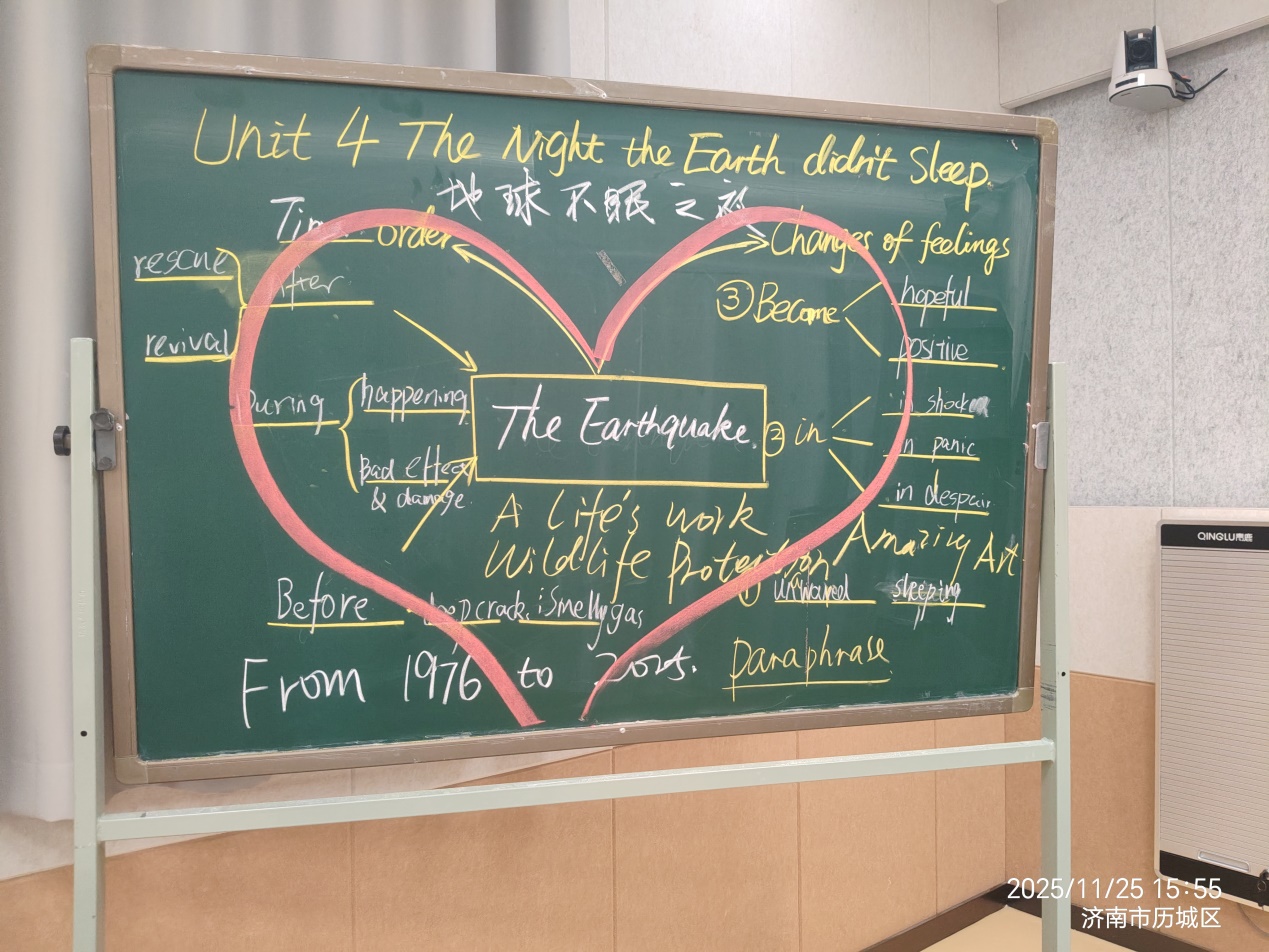 Unit 4 The Night the Earth didn't Sleep.
地球不眠之夜
order
Changes of feelings
rescue
revival
③ Become
hopeful
positive
During
happening
Bad effect
& damage
The Earthquake.
② in
in shock
in panic
in despair
A life's work
Wildlife Protection
Amazing Art
Before
crack. Smelly gas
sleeping
From 1976 to 2025.
paraphrase
QINGLU
2025/11/25 15:55
济南市历城区